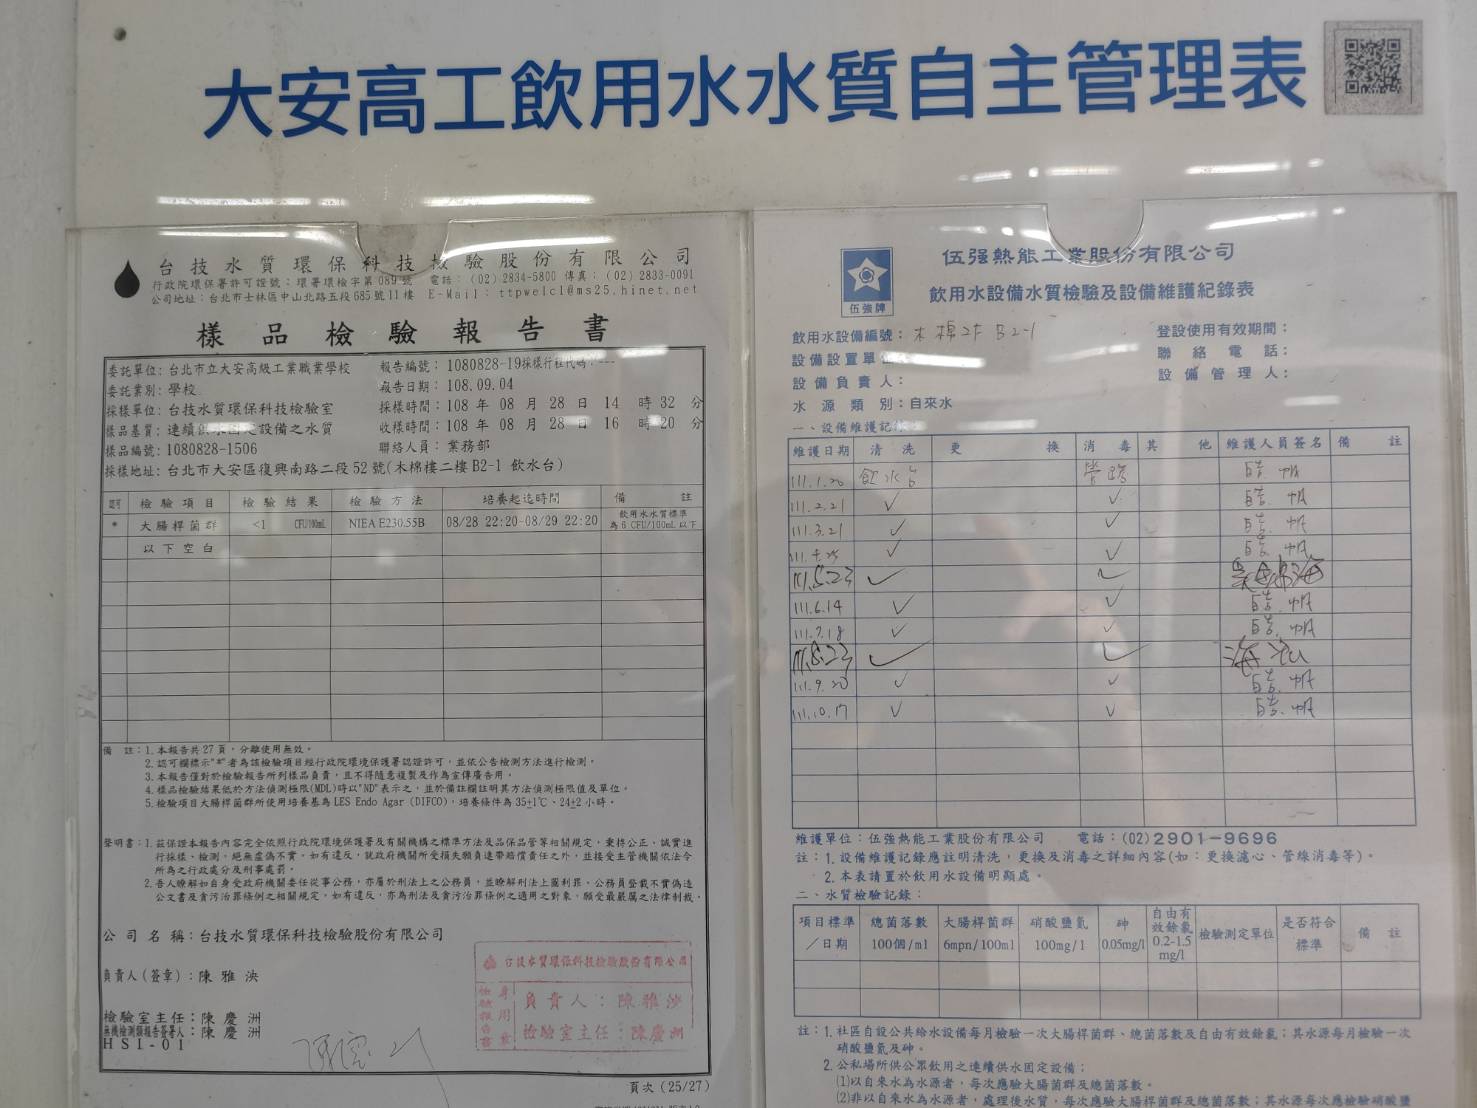 大安高工飲用水水質自主管理表
台技水質環保科技檢驗股份有限公司
行政院環保署許可證號：環署環檢字第089號 電話：(02) 2834-5800 傳真：(02) 2833-0091
公司地址：台北市士林區中山北路五段685號11樓 E-Mail：ttpwelcl@ms25.hinet.net
樣品檢驗報告書
委託單位：台北市立大安高級工業職業學校 報告編號：1080828-19採樣行程代碼：---
委託業別：學校 報告日期：108.09.04
採樣單位：台技水質環保科技檢驗室 採樣時間：108 年 08 月 28 日 14 時 32 分
樣品基質：連續供水固定設備之水質 收樣時間：108 年 08 月 28 日 16 時 20 分
樣品編號：1080828-1506 聯絡人員：業務部
採樣地址：台北市大安區復興南路二段52號(木棉樓二樓B2-1 飲水台)
檢驗項目 檢驗結果 檢驗方法 培養起迄時間 備註
* 大腸桿菌群 <1 CFU/100mL NIEA E230.55B 08/28 22:20-08/29 22:20 飲用水水質標準
為 6 CFU/100mL 以下
以下空白
備 註：1.本報告共27頁，分離使用無效。
2.認可欄標示"*"者為該檢驗項目經行政院環境保護署認證許可，並依公告檢測方法進行檢測。
3.本報告僅對於檢驗報告所列樣品負責，且不得隨意複製及作為宣傳廣告用。
4.樣品檢驗結果低於方法偵測極限(MDL)時以"ND"表示之，並於備註欄註明其方法偵測極限值及單位。
5.檢驗項目大腸桿菌群所使用培養基為 LES Endo Agar (DIFCO)，培養條件為 35±1℃、24±2 小時。
聲明書：1.茲保證本報告內容完全依照行政院環境保護署及有關機構之標準方法及品保品管等相關規定，秉持公正、誠實進
行採樣、檢測，絕無虛偽不實，如有違反，就政府機關所受損失願負連帶賠償責任之外，並接受主管機關依法令
所為之行政處分及刑事處罰。
2.吾人瞭解如自身受政府機關委任從事公務，亦屬於刑法上之公務員，並瞭解刑法上圖利罪、公務員登載不實偽造
公文書及貪污治罪條例之相關規定，如有違反，亦為刑法及貪污治罪條例之適用之對象，願受最嚴厲之法律制裁。
公司名稱：台技水質環保科技檢驗股份有限公司
負責人(簽章)：陳雅泱
檢驗室主任：陳慶洲
無機檢測類報告簽署人：陳慶洲
HSI-01
台技水質環保科技檢驗股份有限公司
負責人：陳雅泱
檢驗室主任：陳慶洲
頁次 (25/27)
伍強牌
伍强熱能工業股份有限公司
飲用水設備水質檢驗及設備維護紀錄表
飲用水設備編號：木棉2F B2-1 登設使用有效期間：
設備設置單位 聯絡電話：
設備負責人： 設備管理人：
水源類別：自來水
一、設備維護記
維護日期 清洗 更換 消毒 其他 維護人員簽名 備註
111.1.20 飲水台 管路
111.2.21 ✓ ✓
111.3.21 ✓ ✓
111.4.25 ✓ ✓
111.5.23 ✓ ✓
111.6.14 ✓ ✓
111.7.18 ✓ ✓
111.8.23 ✓ ✓
111.9.20 ✓ ✓
111.10.17 ✓ ✓
維護單位：伍強熱能工業股份有限公司 電話：(02)2901-9696
註：1.設備維護記錄應註明清洗，更換及消毒之詳細內容(如：更換濾心、管線消毒等)。
2.本表請置於飲用水設備明顯處。
二、水質檢驗記錄：
項目標準／日期 總菌落數 100個/ml 大腸桿菌群 6mpn/100ml 硝酸鹽氮 100mg/l 砷 0.05mg/l 自由有效餘氯 0.2-1.5 mg/l 檢驗測定單位 是否符合標準 備註
註：1.社區自設公共給水設備每月檢驗一次大腸桿菌群、總菌落數及自由有效餘氯；其水源每月檢驗一次
硝酸鹽氮及砷。
2.公私場所供公眾飲用之連續供水固定設備：
(1)以自來水為水源者，每次應驗大腸菌群及總菌落數。
(2)非以自來水為水源者，處理後水質，每次應驗大腸桿菌群及總菌落數；其水源每次應檢驗硝酸鹽